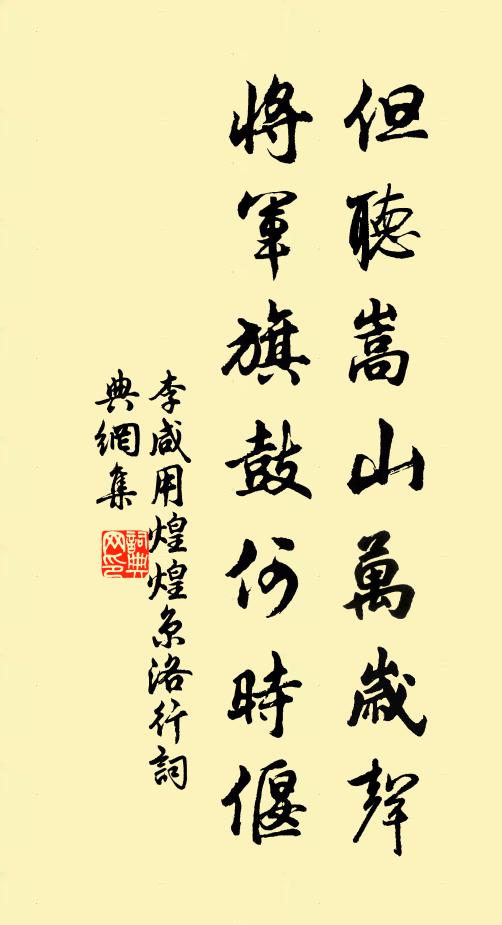 但聽嵩山萬歲聲
將軍旗鼓何時偃
李咸用煌煌京洛行詞
典網集
詞典网印